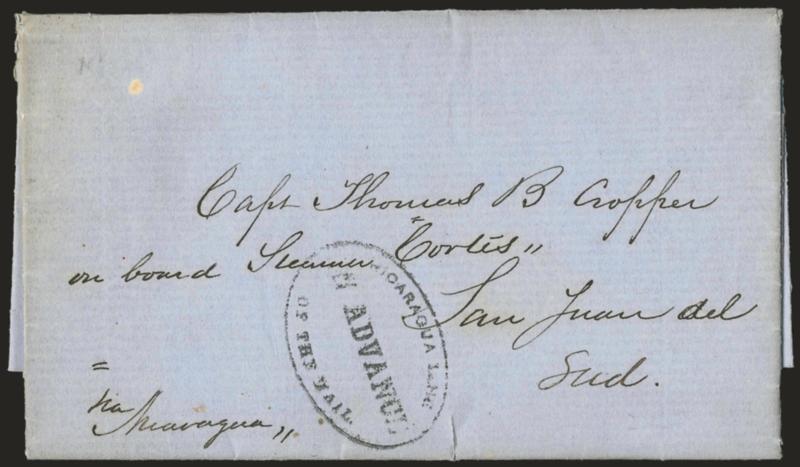 Capt Thomas B Cropper
on board Steamer "Cortes"
San Juan del
Sud.
=
via
Nicaragua "
NICARAGUA LINE
IN ADVANCE
OF THE MAIL